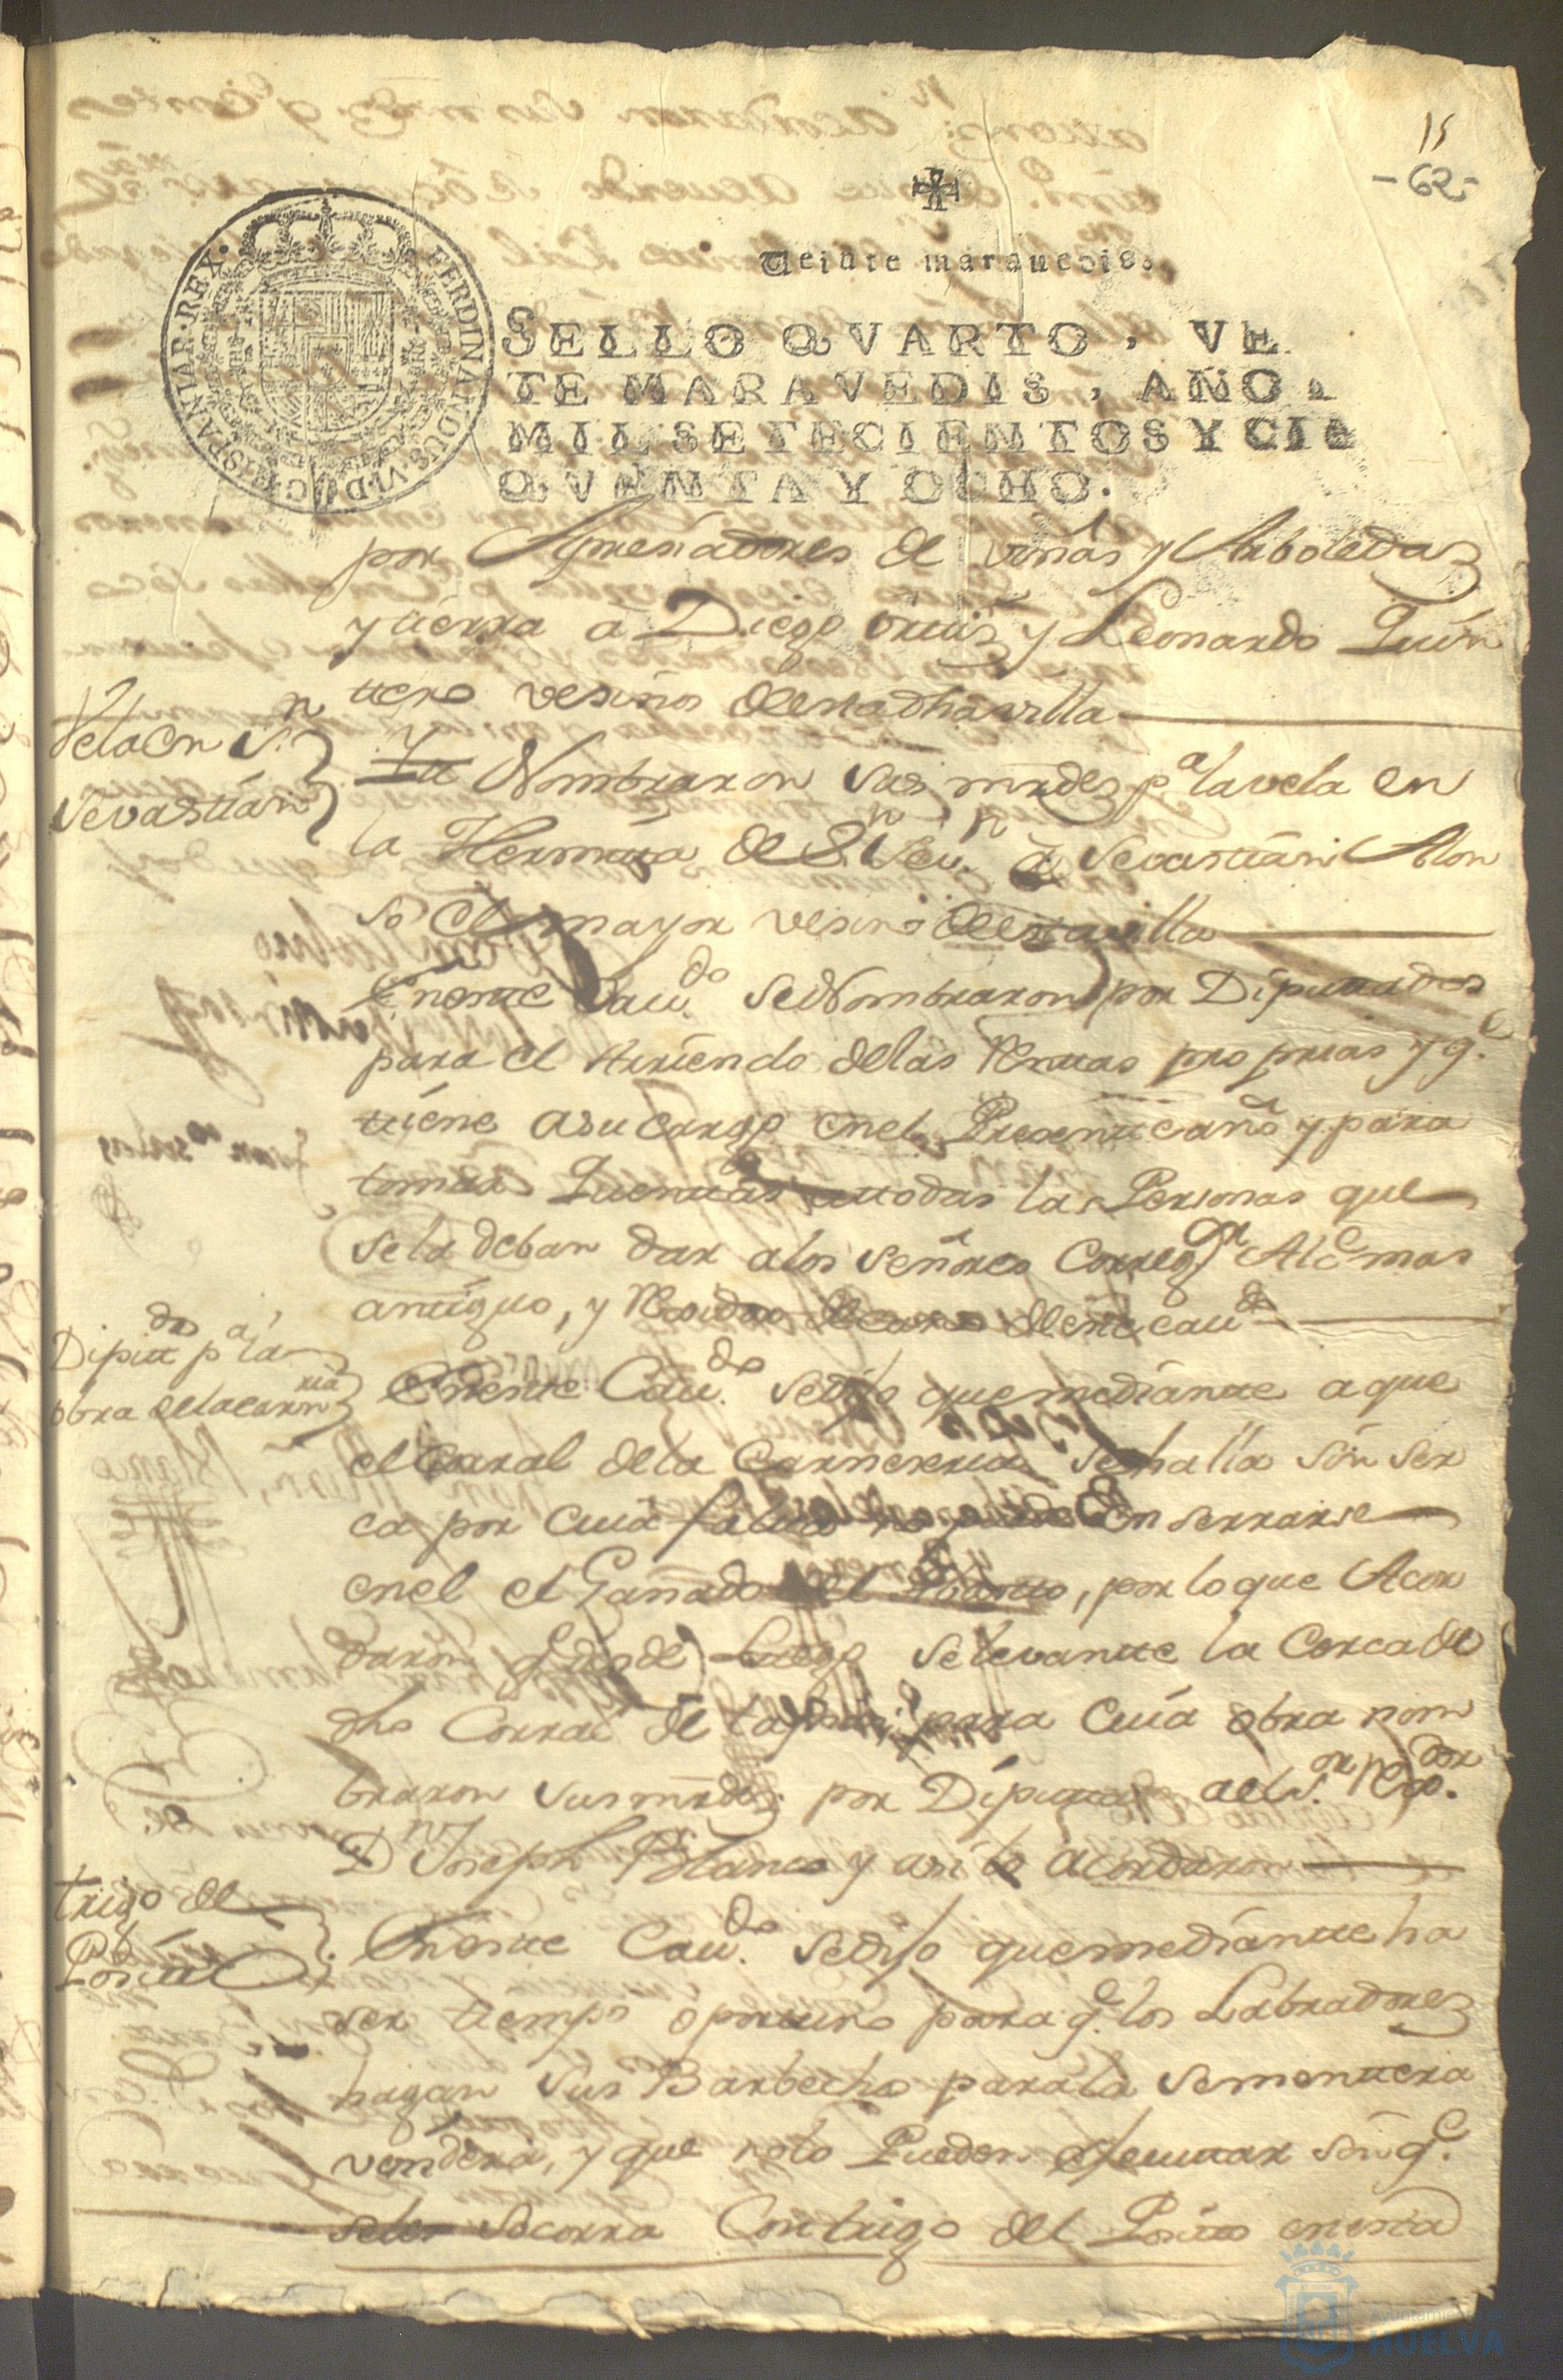 15
-62-
Veinte maravedis.
SELLO QVARTO, VE
TE MARAVEDIS, AÑO
MIL SETECIENTOS Y CIN
QVENTA Y OCHO.
FERDINANDUS·VI·D·G·HISPANIAR·REX·
por Apresiadores de viñas y Arboledas
y tierra a Diego ortiz y Leonardo Quin
tero vesinos de esta dha villa
Vela en Sn
Sevastian
Nombraron sus mrdes pa la vela en
la Hermita de Sn Sevn a Sevastian Alon
so el mayor vesino de esta villa
En este Cavdo se Nombraron por Diputados
para el Arriendo de las Rentas proprias y qe
tiene a su cargo en el Presente año y para
tomar Quentas a todas las Personas que
se la deban dar a los señores Corregor Alce mas
antiguo, y Rexidor Decano de este cavdo
Diputdos pa la
obra de la carnria
En este Cavdo se dijo que mediante a que
el Corral de la Carneseria se halla sin ser
ca por cuia falta no puede Enserrarse
en el el Ganado del Abasto, por lo que Acor
daron qe desde Luego se levante la Cerca de
dho Corral de tapias para Cuia obra nom
braron sus mrdes por Diputado al Sor Rexdor
Dn Joseph Blanco y asi lo acordaron
trigo del
Posito
En este Cavdo se dijo que mediante ha
ser tiempo oportuno para qe los Labradores
hagan sus Barbechos para la sementera
vendera, y que no lo Pueden ejecutar sin qe
se les socorra Con trigo del Posito en esta
Ayuntamiento de
HUELVA